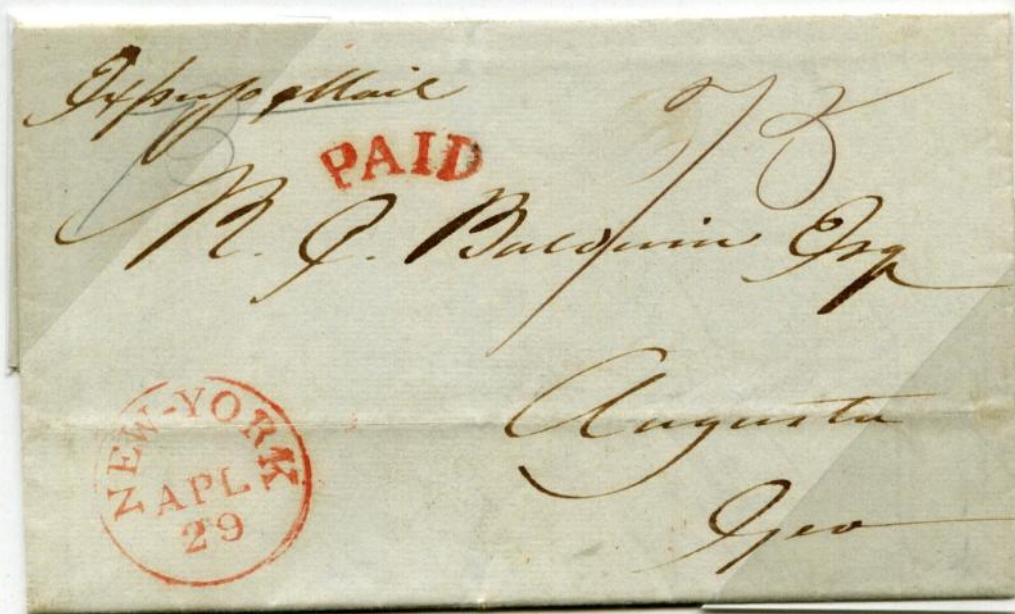 Express Mail
75
PAID
R. J. Baldwin Esq
Augusta
Geo
NEW-YORK
APL
29